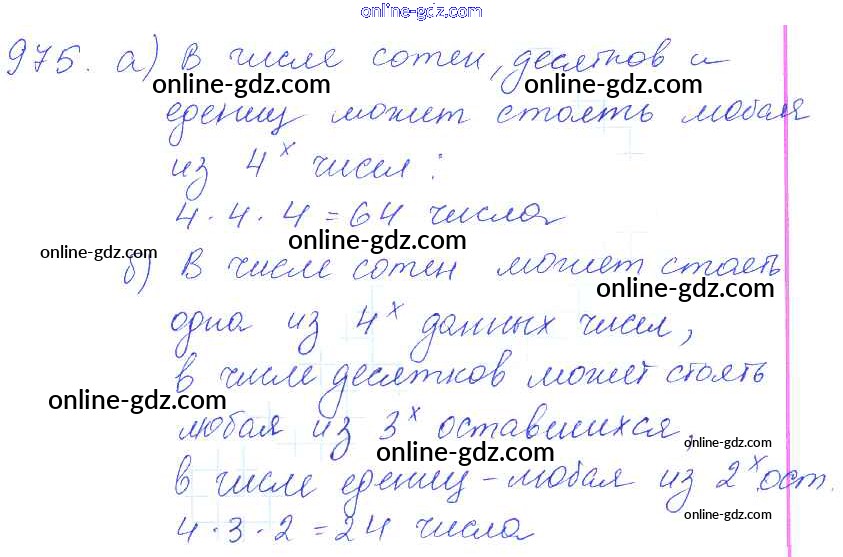 online-gdz.com
975. а) В числе сотен, десятков и
online-gdz.com online-gdz.com
едениц может стоять любая
из 4х чисел:
4 · 4 · 4 = 64 числа
online-gdz.com online-gdz.com
б) В числе сотен может стоять
online-gdz.com
одна из 4х данных чисел,
в числе десятков может стоять
online-gdz.com
любая из 3х оставшихся,
online-gdz.com online-gdz.com
в числе едениц – любая из 2х ост.
online-gdz.com
4 · 3 · 2 = 24 числа
online-gdz.com